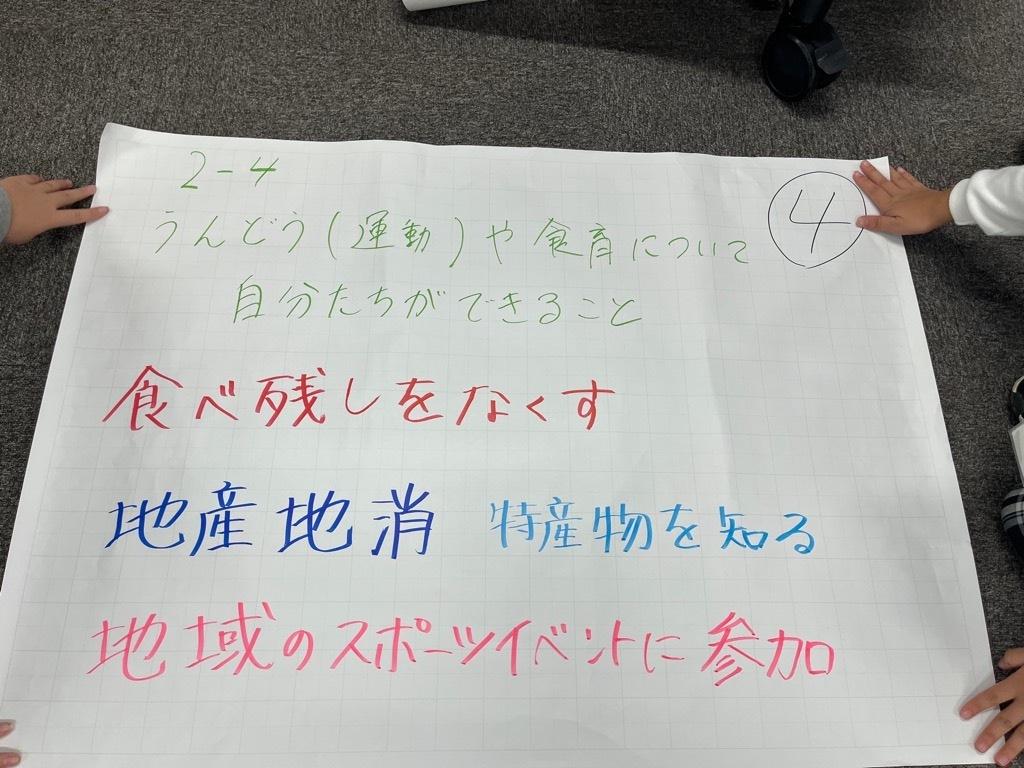 2-4
④
うんどう(運動)や食育について
自分たちができること
食べ残しをなくす
地産地消 特産物を知る
地域のスポーツイベントに参加